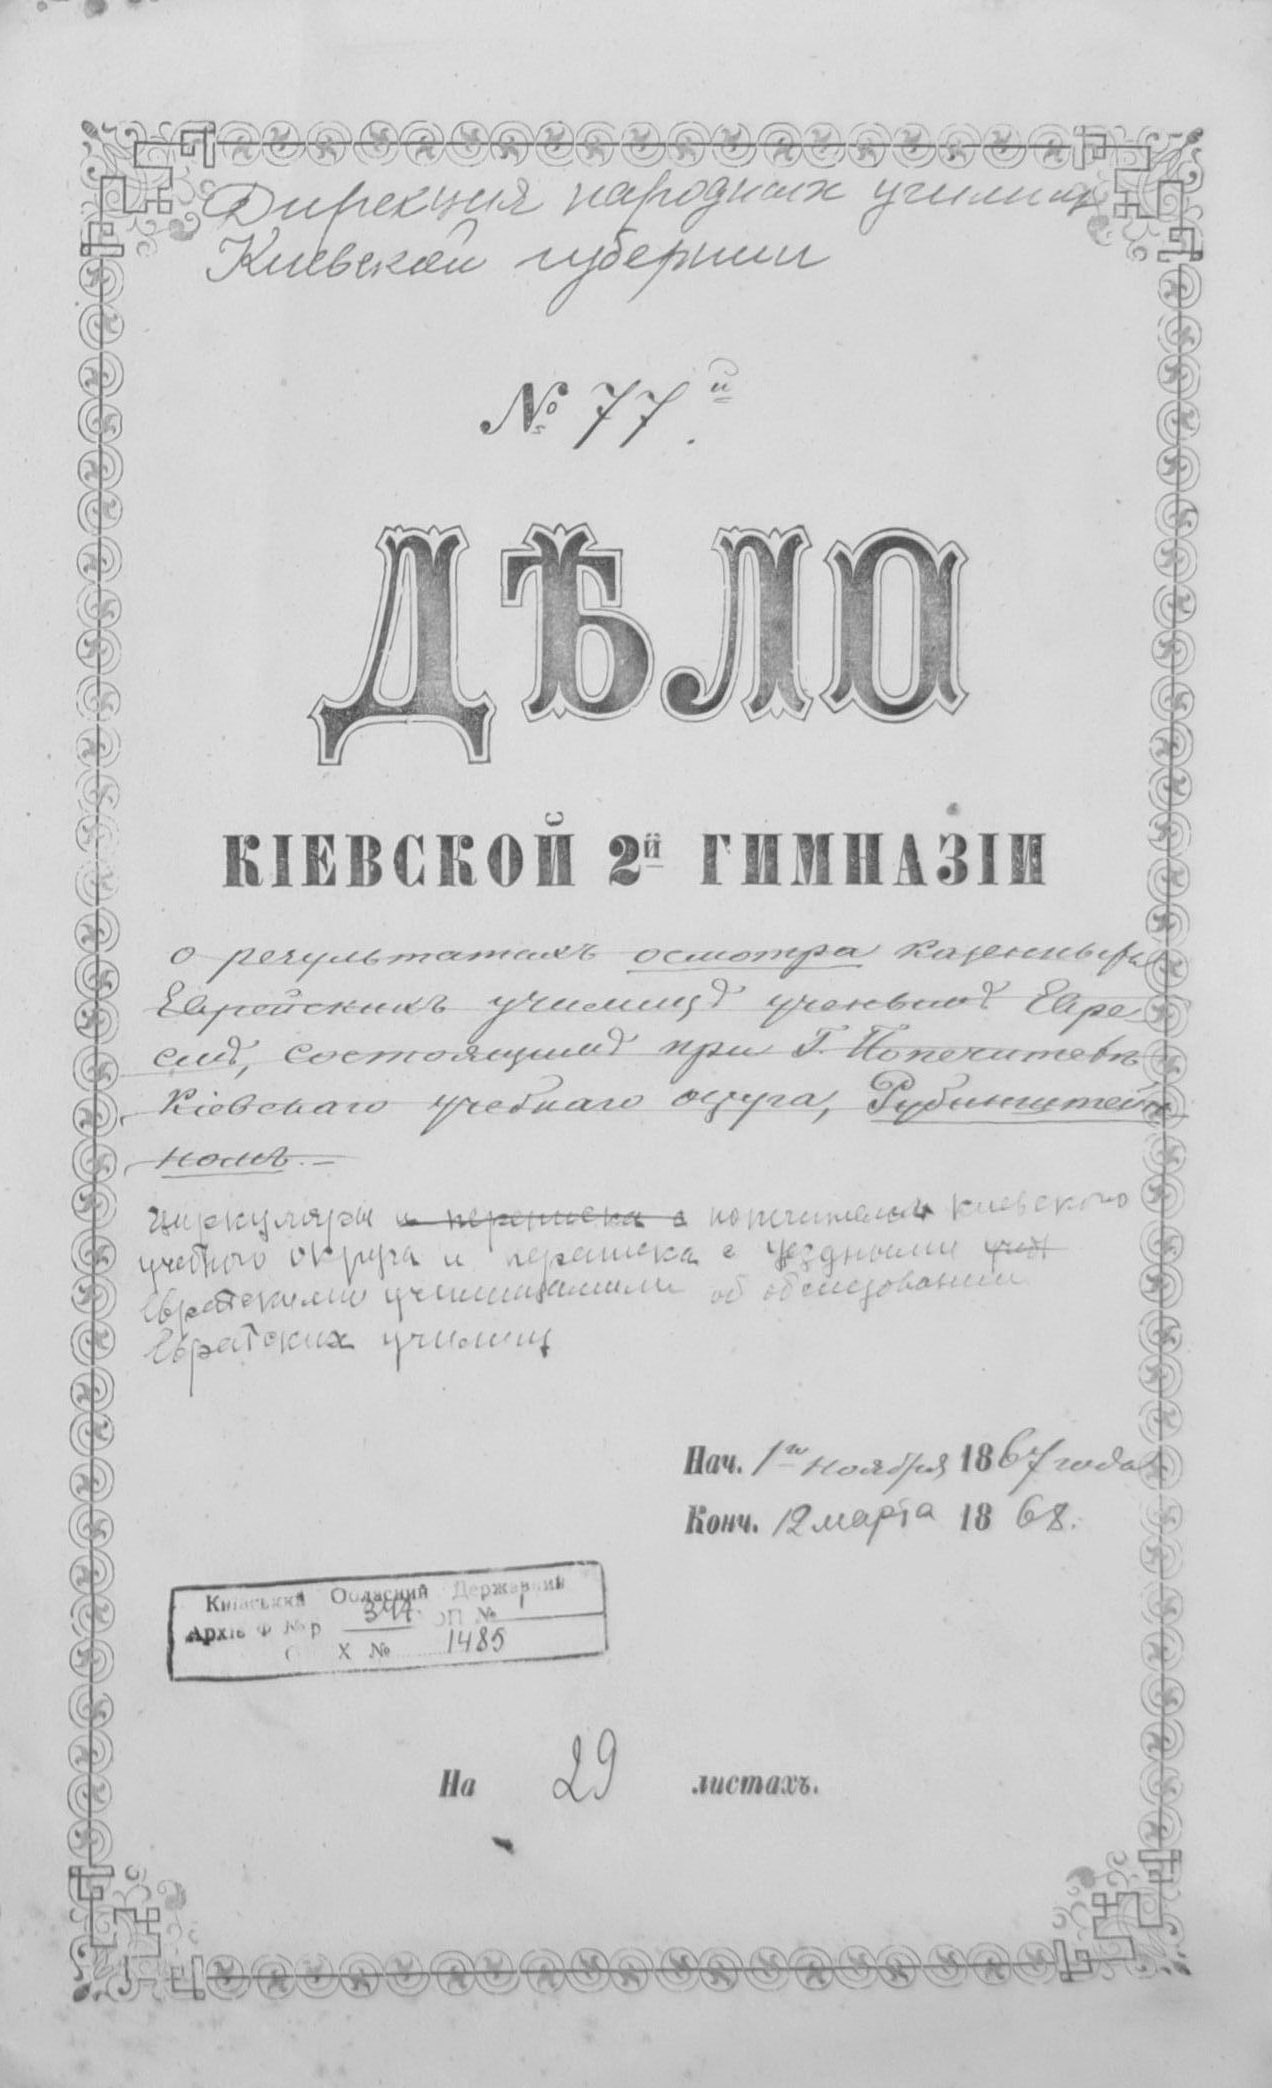 Дирекция народных училищ
Киевской губернии
№ 77й
ДѢЛО
КІЕВСКОЙ 2й ГИМНАЗІИ
о результатахъ осмотра казенныхъ
Еврейскихъ училищъ ученымъ Евре
емъ, состоящимъ при Г. Попечителѣ
Кіевскаго учебнаго округа, Рубинштей
номъ.
Циркуляры и переписка с попечителем Киевского
учебного округа и переписка с уездными учил
Еврейскими училищами об обследовании
Еврейских училищ
Нач. 1го ноября 1867 года
Конч. 12 марта 1868.
Київський Обласний Державний
Архів Ф № р 347 ОП № 1
Х № 1485
На 29 листахъ.